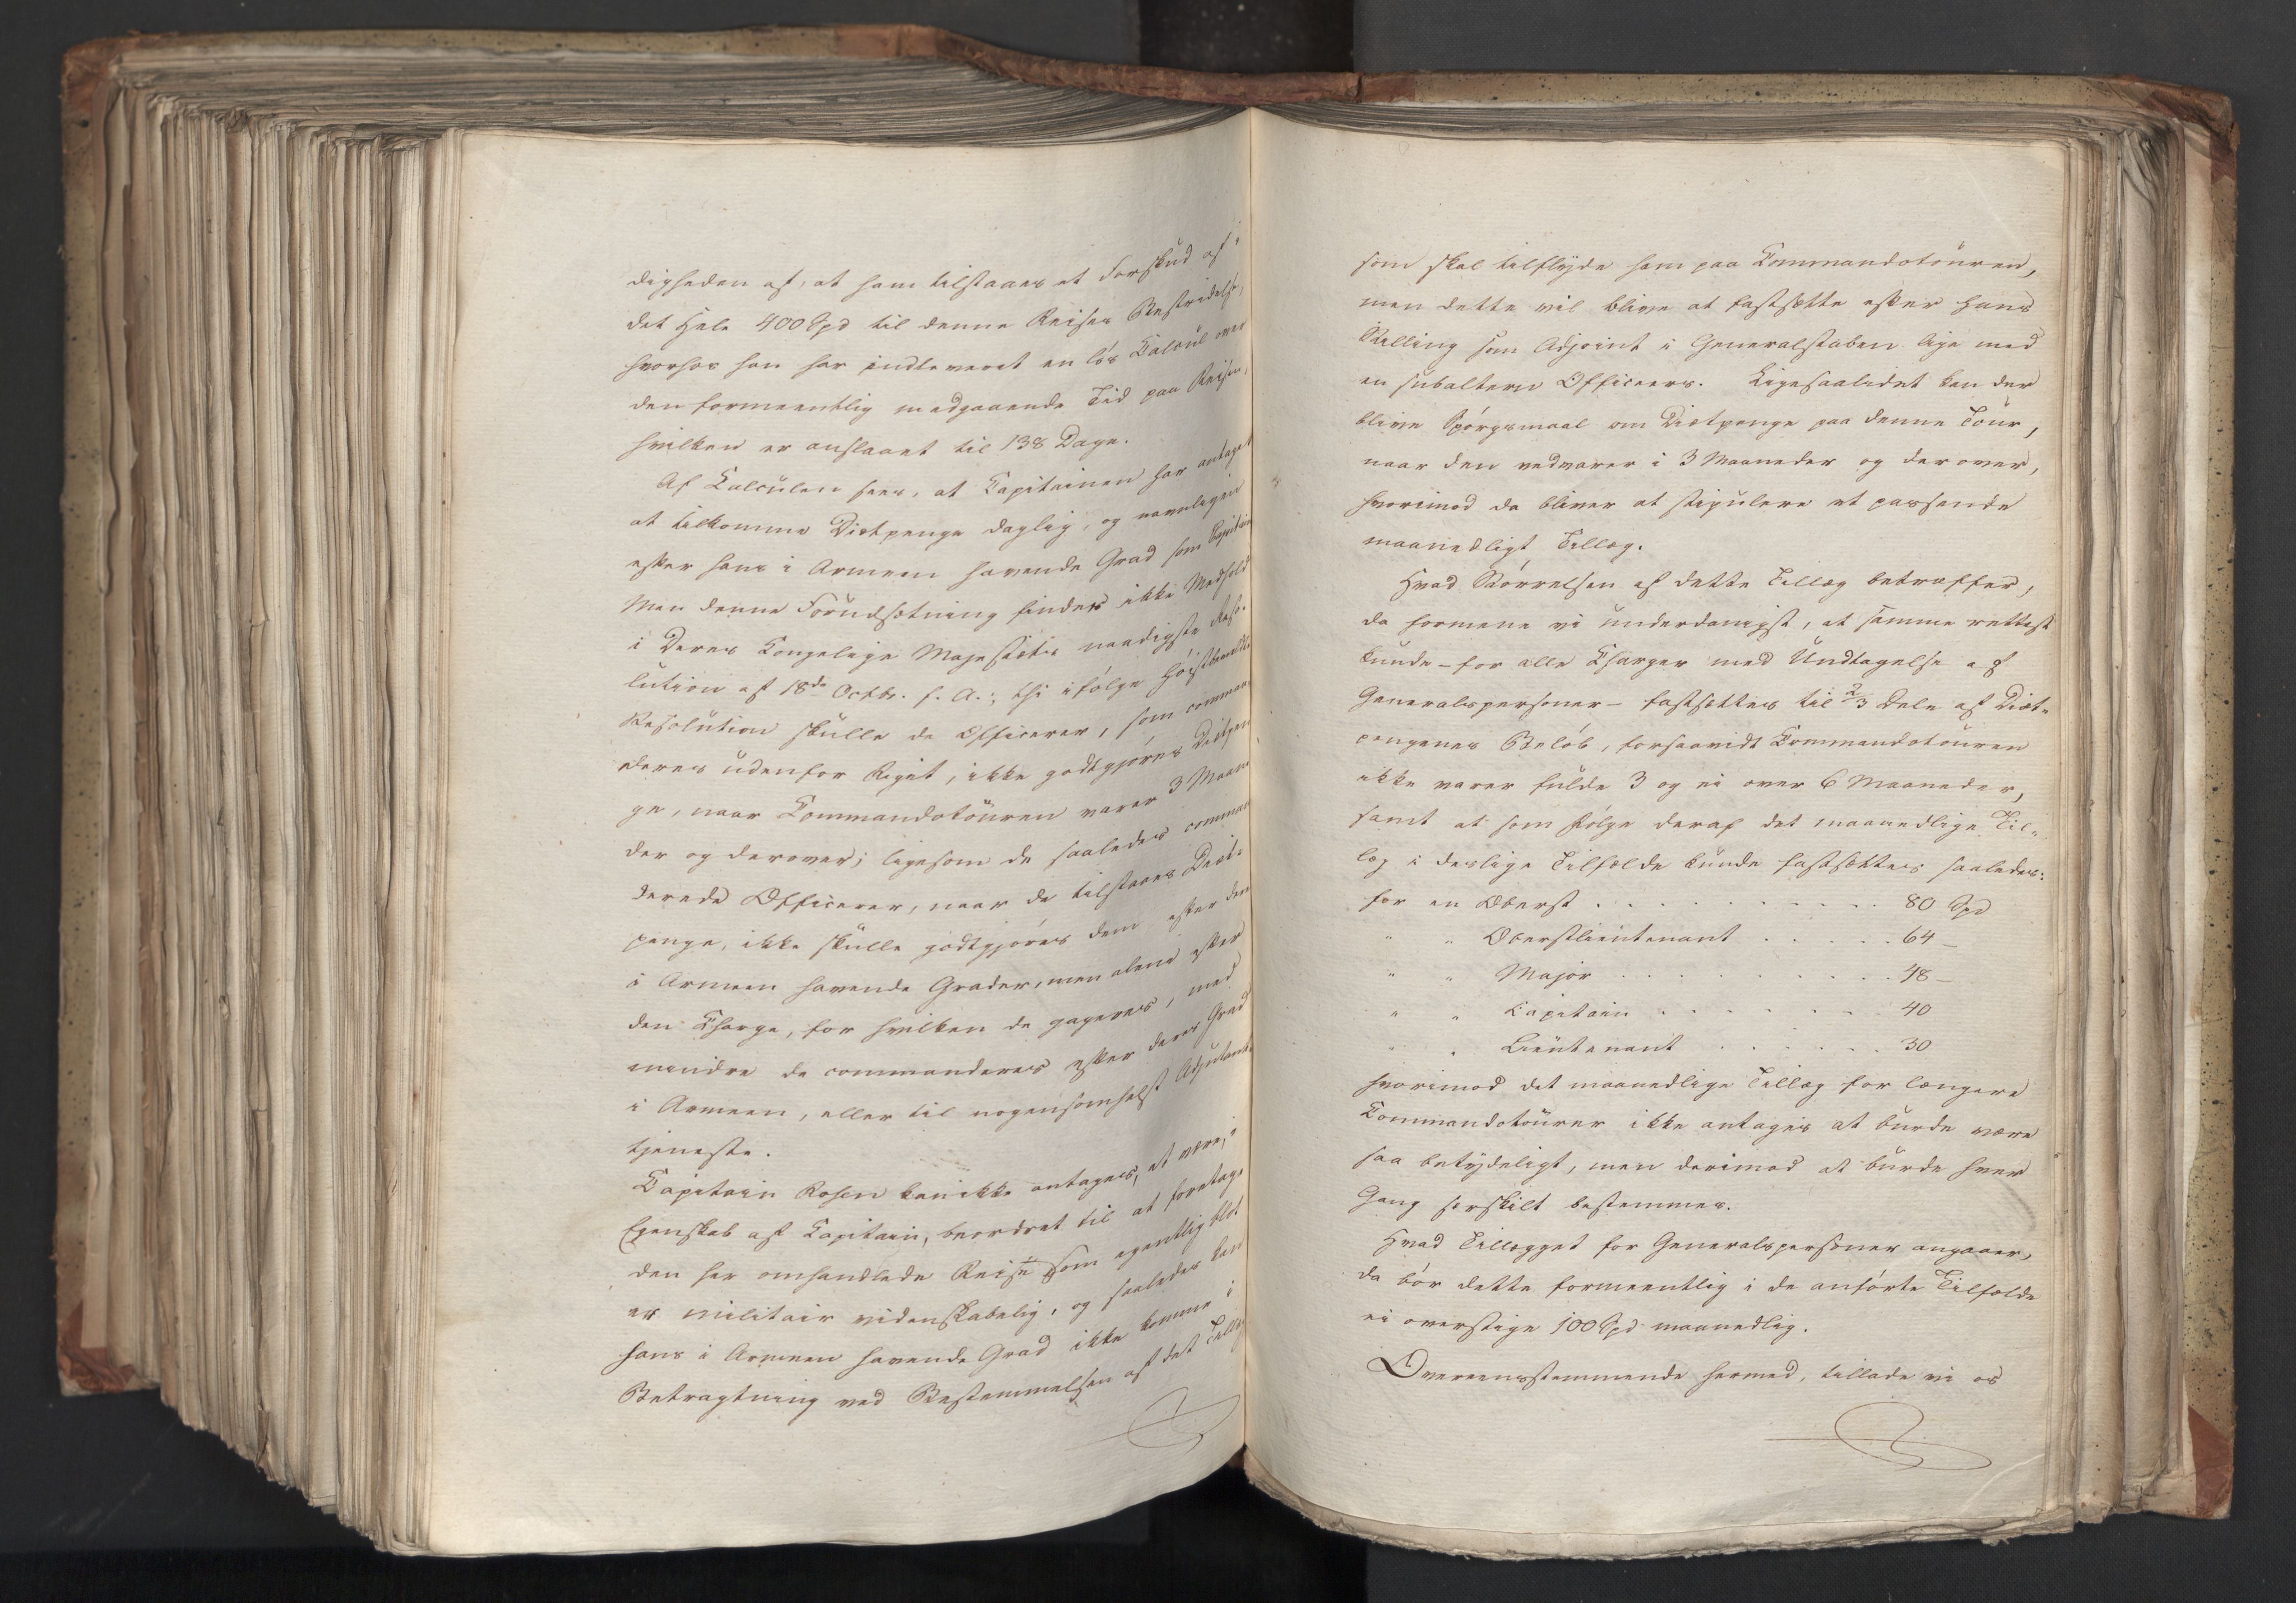 digheden af, at ham tilstaaes et Forskud af i
det Hele 400 Spd til denne Reises Bestridelse,
hvorhos han har indleveret en løs Calcul over
den formeentlig medgaaende Tid paa Reisen,
hvilken er anslaaet til 138 Dage.
Af Calculen sees, at Capitainen har antaget
at tilkomme Diætpenge daglig, og navnligen
efter hans i Armeen havende Grad som Capitain
Men denne Forudsætning finder ikke Medhold
i Deres Kongelige Majestæts naadigste Reso-
lution af 18de Octbr. f. A.; thi ifølge Høistbemeldte
Resolution skulle de Officerer, som comman-
deres udenfor Riget, ikke godtgjøres Diætpen
ge, naar Commandotouren varer 3 Maane
der og derover; ligesom de saaledes comman
derede Officerer, naar de tilstaaes Diæt-
penge, ikke skulle godtgjøres dem efter den
i Armeen havende Grader, men alene efter
den Charge, for hvilken de gageres, med
mindre de commanderes efter deres Grad
i Armeen, eller til nogensomhelst Adjutant-
tjeneste.
Capitain Rosen kan ikke antages, at være, i
Egenskab af Capitain, beordret til at foretage
den her omhandlede Reise som egentlig blot
er militair videnskabelig, og saaledes kan
hans i Armeen havende Grad ikke komme i
Betragtning ved Bestemmelsen af det Tillæg
som skal tilflyde ham paa Commandotouren,
men dette vil blive at fastsætte efter hans
Stilling som Adjoint i Generalstaben lige med
en subaltern Officeers. Ligesaalidet kan der
blive Spørgsmaal om Diætpenge paa denne Tour,
naar den vedvarer i 3 Maaneder og derover,
hvorimod da bliver at stipulere et passende
maanedligt Tillæg.
Hvad Størrelsen af dette Tillæg betræffer,
da formene vi underdanigst, at samme rettest
kunde - for alle Charger med Undtagelse af
Generalspersoner - fastsættes til 2/3 Dele af Diæt-
pengenes Beløb, forsaavidt Commandotouren
ikke varer fulde 3 og ei over 6 Maaneder,
samt at som Følge deraf det maanedlige Til-
læg i deslige Tilfælde kunde fastsættes saaledes:
for en Oberst . . . . . . . . . . 80 Spd
" " Oberstlieutenant . . . . . 64 -
" " Major . . . . . . . . . 48 -
" " Capitain . . . . . . . 40
" " Lieutenant . . . . . . 30
hvorimod det maanedlige Tillæg for længere
Commandotourer ikke antages at burde være
saa betydeligt, men derimod at burde hver
Gang særskilt bestemmes.
Hvad Tillægget for Generalspersoner angaaer,
da bør dette formeentlig i de anførte Tilfælde
ei overstige 100 Spd maanedlig.
Overeensstemmende hermed, tillade vi os